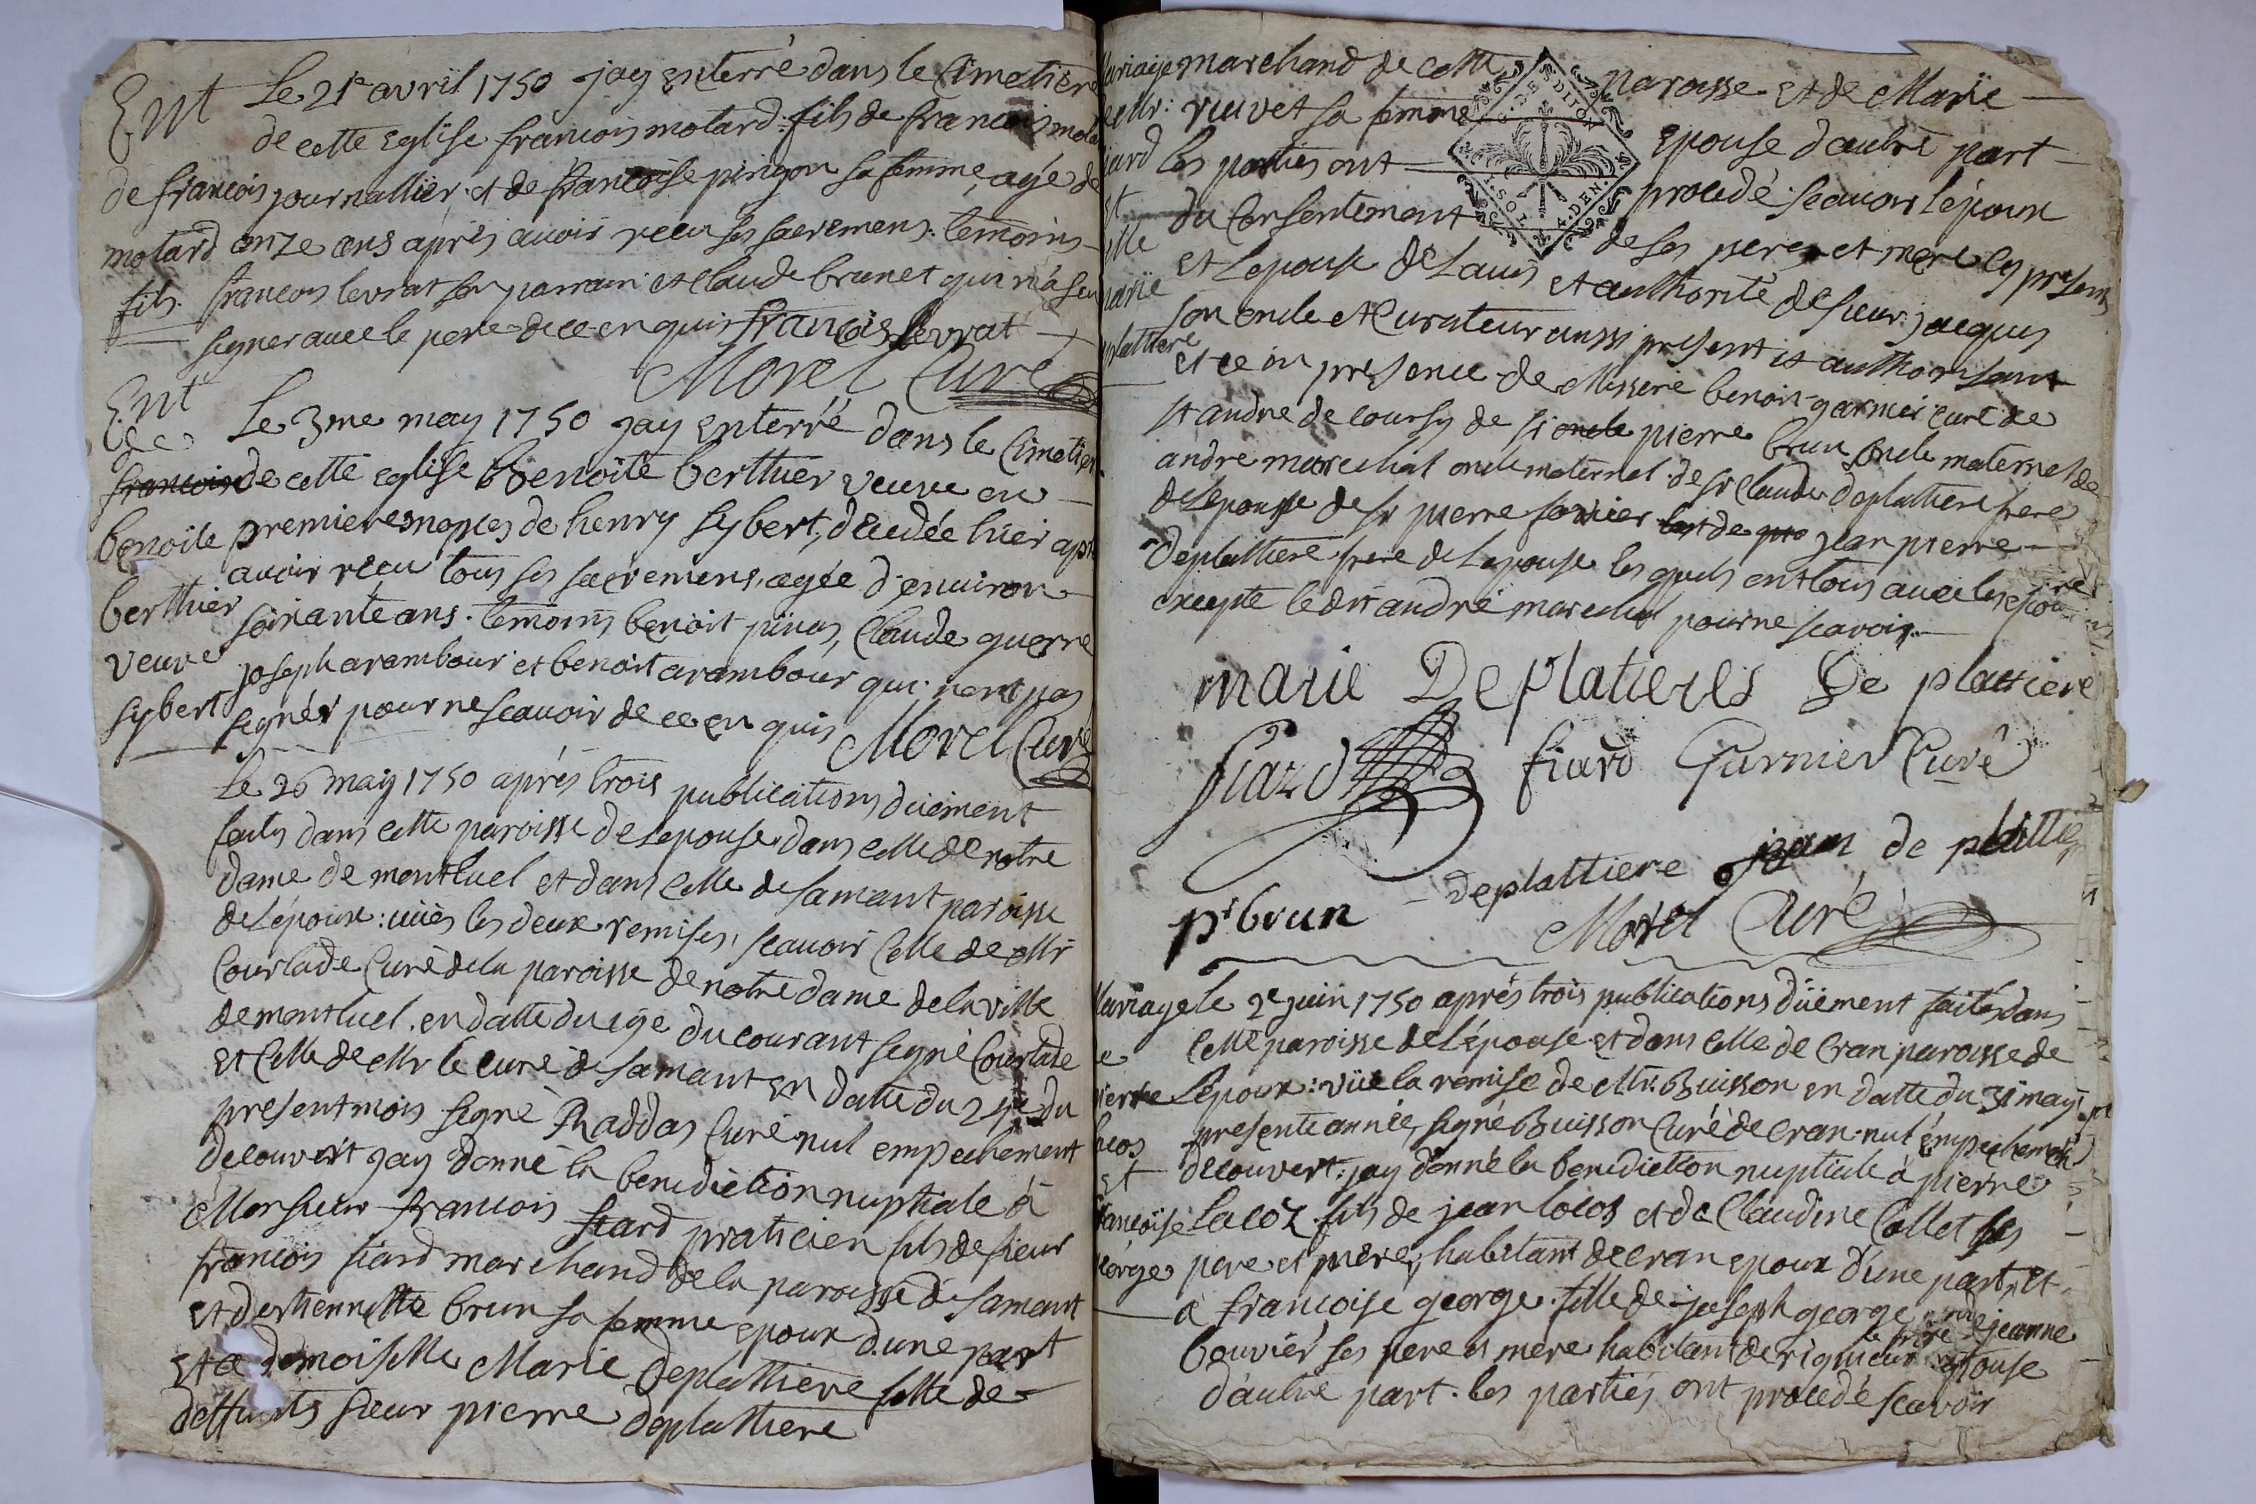 Ent Le 21e avril 1750 jay enterré dans le Cimetiere
de cette Eglise francois motard fils de francois
de francois journallier et de francoise pingon sa femme, agé de
motard onze ans aprés avoir receu ses sacremens. temoins
fils. francois levrat son parrain et Claude brunet qui n'a sceu
signer avec le pere de ce enquis francois levrat
Morel Curé
Ent Le 3me may 1750 jay Enterré dans le Cimetiere
de
francoise de cette Eglise Benoite berthier veuve en
benoite premieres nopces de henry sybert, decedée hier apres
avoir receu tous ses sacremens, agée d'environ
berthier soixante ans. temoins benoit Claude guerre
veuve joseph arambour et benoit arambour qui n'ont pas
sybert signér pour ne scavoir de ce enquis Morel Curé
Le 26 may 1750 aprés trois publications düement
faites dans cette paroisse de Lepouse, dans celle de notre
dame de montluel et dans Celle de samant paroisse
de Lépoux: vües les deux remises, scavoir Celle de Mr
Courlade Curé de la paroisse de notre dame de la ville
de montluel. en datte du du courant signé Courlade
et Celle de Mr le curé de samant En datte du du
present mois signé Raddas Curé nul empechement
decouvert jay donné la benediction nuptiale à
Monsieur francois fiard praticien fils de sieur
francois fiard marchand de la paroisse de samant
et d'estiennette brun sa femme epoux d'une part
et a demoiselle Marie deplattiere fille de
deffunts sieur pierre deplattiere
Mariage marchand de cette paroisse et de Marie
de Mr: ruivet sa femme Epouse d'autre part
fiard les parties ont procedé scavoir l'époux
et du Consentement de ses pere et mere cy presents
Mlle et Lepouse de L'avis et authorité de sieur jacques
marie son oncle et Curateur aussi present et authorisant
plattiere et ce en presence de Messire benoit garnier curé de
st andré de coursy de sr oncle pierre brun oncle maternel de
andré marechal oncle maternel de sr Claude deplattiere frere
de Lepouse de sr pierre jean pierre
deplattiere frere de Lepouse les quels ont tous avec les epoux
excepté le dit andré marechal pour ne scavoir.
marie Deplatieres De plattiere
fiard fiard Garnier Curé
deplattiere jean de plattie
pr brun Morel Curé
G. DE DIJON
1. SOL 4. DEN.
Mariage le 2e juin 1750 aprés trois publications düement faites dans
de cette paroisse de L'épouse et dans Celle de Cran paroisse de
pierre Lépoux: vüe la remise de Mr. Buisson en datte du 31 may
locos presente année, signé Buisson Curé de Cran. nul émpechement
et découvert: jay donné la benediction nuptiale à pierre
francoise Locoz fils de jean locos et de Claudine Collet ses
george pere et mere, habitant de cran epoux d'une part, et
à francoise george fille de joseph george jeanne
bouvier ses pere et mere habitant de rignieux epouse
d'autre part. les parties ont procedé scavoir